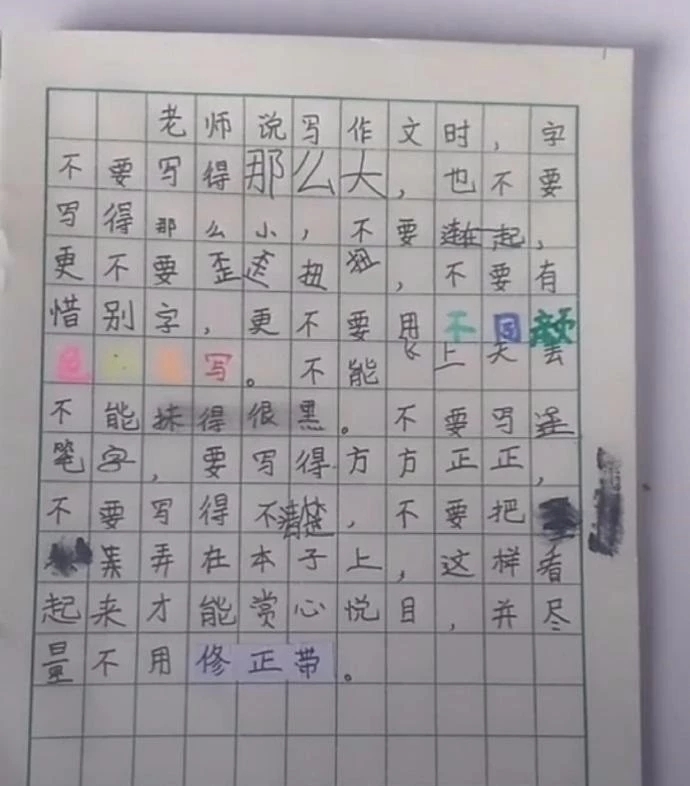 老师说写作文时，字
不要写得那么大，也不要
写得那么小，不要连在一起，
更不要歪歪扭扭，不要有
惜别字，更不要用不同颜
色 写。不能飞上天去
不能抹得很黑。不要写连
笔字，要写得方方正正，
不要写得不清楚，不要把
弄在本子上，这样看
起来才能赏心悦目，并尽
量不用修正带。